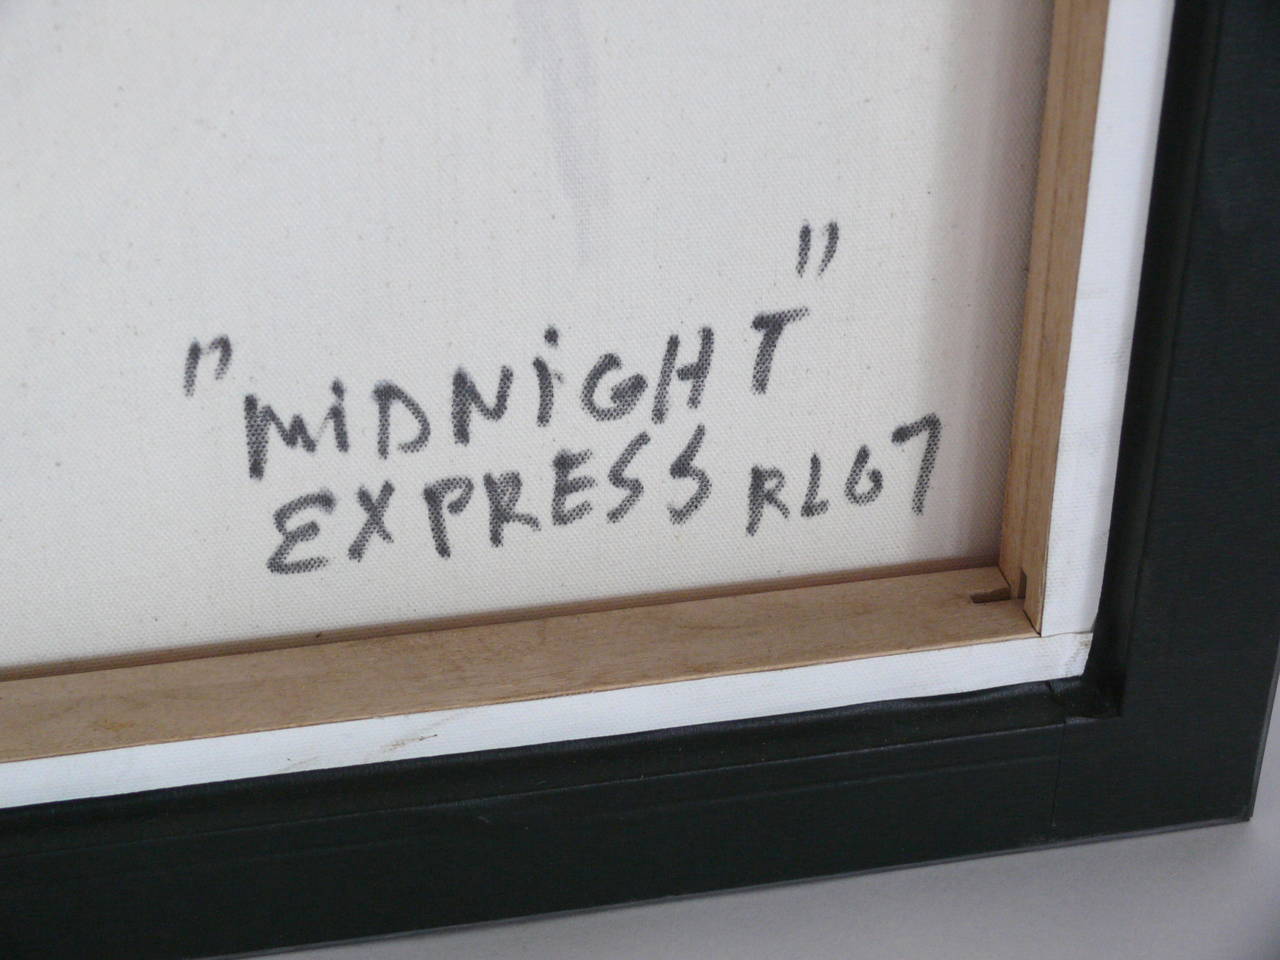 "MiDNiGHT"
EXPRESS RLG7